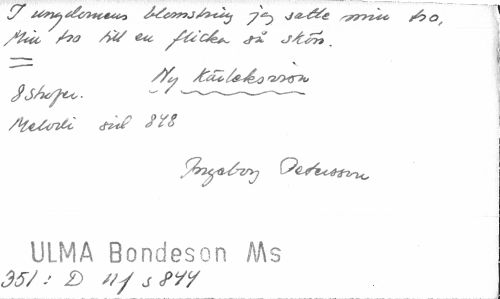 I ungdomens blomstring jag satte min tro,
Min tro till en flicka så skön.
Ny Kärleksvisa
8 strofer.
Melodi sid 848
Ingeborg Petersson
ULMA Bondeson Ms
351: D s 844